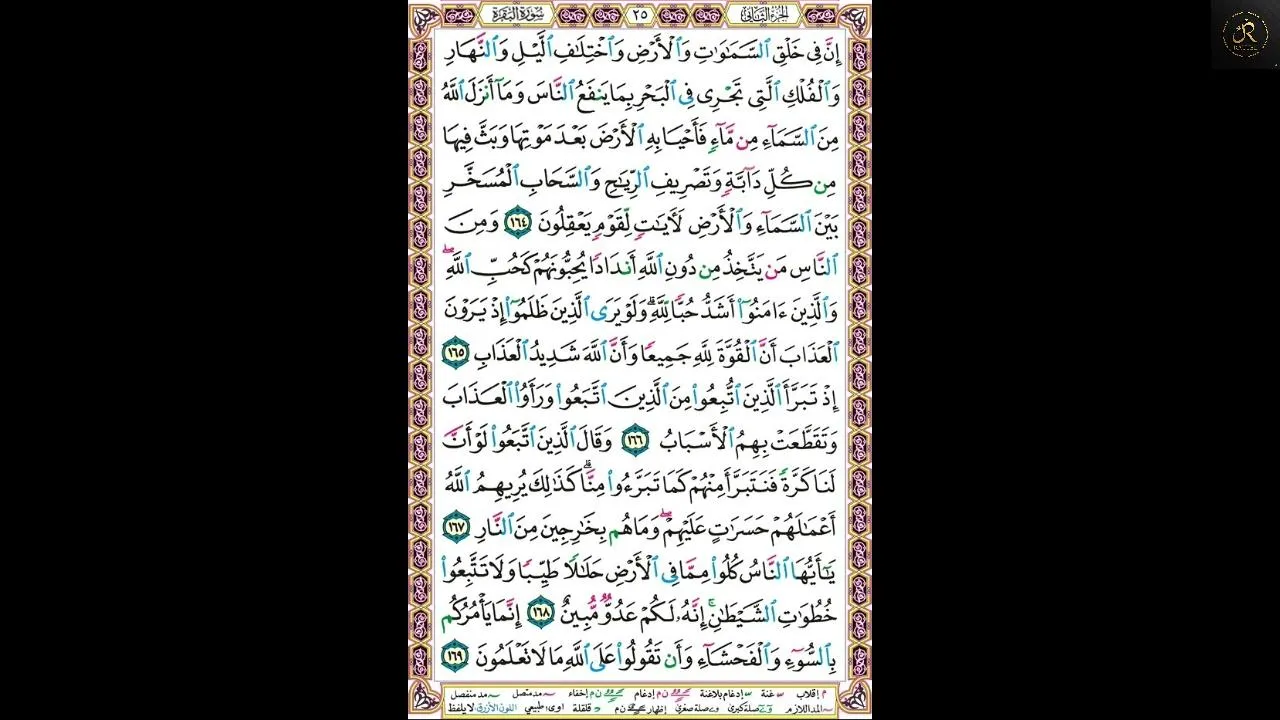 الجزء الثاني ٢٥ سورة البقرة
إِنَّ فِي خَلْقِ ٱلسَّمَٰوَٰتِ وَٱلْأَرْضِ وَٱخْتِلَٰفِ ٱلَّيْلِ وَٱلنَّهَارِ
وَٱلْفُلْكِ ٱلَّتِي تَجْرِي فِي ٱلْبَحْرِ بِمَا يَنفَعُ ٱلنَّاسَ وَمَآ أَنزَلَ ٱللَّهُ
مِنَ ٱلسَّمَآءِ مِن مَّآءٍ فَأَحْيَا بِهِ ٱلْأَرْضَ بَعْدَ مَوْتِهَا وَبَثَّ فِيهَا
مِن كُلِّ دَآبَّةٍ وَتَصْرِيفِ ٱلرِّيَٰحِ وَٱلسَّحَابِ ٱلْمُسَخَّرِ
بَيْنَ ٱلسَّمَآءِ وَٱلْأَرْضِ لَأٓيَٰتٍ لِّقَوْمٍ يَعْقِلُونَ ١٦٤ وَمِنَ
ٱلنَّاسِ مَن يَتَّخِذُ مِن دُونِ ٱللَّهِ أَندَادًا يُحِبُّونَهُمْ كَحُبِّ ٱللَّهِۖ
وَٱلَّذِينَ ءَامَنُوٓا۟ أَشَدُّ حُبًّا لِّلَّهِۗ وَلَوْ يَرَى ٱلَّذِينَ ظَلَمُوٓا۟ إِذْ يَرَوْنَ
ٱلْعَذَابَ أَنَّ ٱلْقُوَّةَ لِلَّهِ جَمِيعًا وَأَنَّ ٱللَّهَ شَدِيدُ ٱلْعَذَابِ ١٦٥
إِذْ تَبَرَّأَ ٱلَّذِينَ ٱتُّبِعُوا۟ مِنَ ٱلَّذِينَ ٱتَّبَعُوا۟ وَرَأَوُا۟ ٱلْعَذَابَ
وَتَقَطَّعَتْ بِهِمُ ٱلْأَسْبَابُ ١٦٦ وَقَالَ ٱلَّذِينَ ٱتَّبَعُوا۟ لَوْ أَنَّ
لَنَا كَرَّةً فَنَتَبَرَّأَ مِنْهُمْ كَمَا تَبَرَّءُوا۟ مِنَّاۗ كَذَٰلِكَ يُرِيهِمُ ٱللَّهُ
أَعْمَٰلَهُمْ حَسَرَٰتٍ عَلَيْهِمْۖ وَمَا هُم بِخَٰرِجِينَ مِنَ ٱلنَّارِ ١٦٧
يَٰٓأَيُّهَا ٱلنَّاسُ كُلُوا۟ مِمَّا فِي ٱلْأَرْضِ حَلَٰلًا طَيِّبًا وَلَا تَتَّبِعُوا۟
خُطُوَٰتِ ٱلشَّيْطَٰنِۚ إِنَّهُۥ لَكُمْ عَدُوٌّ مُّبِينٌ ١٦٨ إِنَّمَا يَأْمُرُكُم
بِٱلسُّوٓءِ وَٱلْفَحْشَآءِ وَأَن تَقُولُوا۟ عَلَى ٱللَّهِ مَا لَا تَعْلَمُونَ ١٦٩
م إقلاب غنة إدغام بلاغنة ن م إدغام ن م إخفاء مد متصل مد منفصل
المد اللازم صلة كبرى صلة صغرى إظهار ن م قلقلة اوى طبيعي اللون الأزرق لا يلفظ